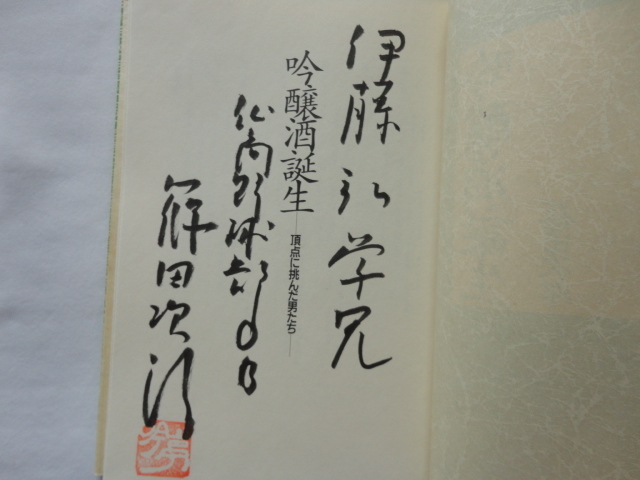 伊藤弘学兄
吟醸酒誕生
頂点に挑んだ男たち
野球部OB
篠田次郎